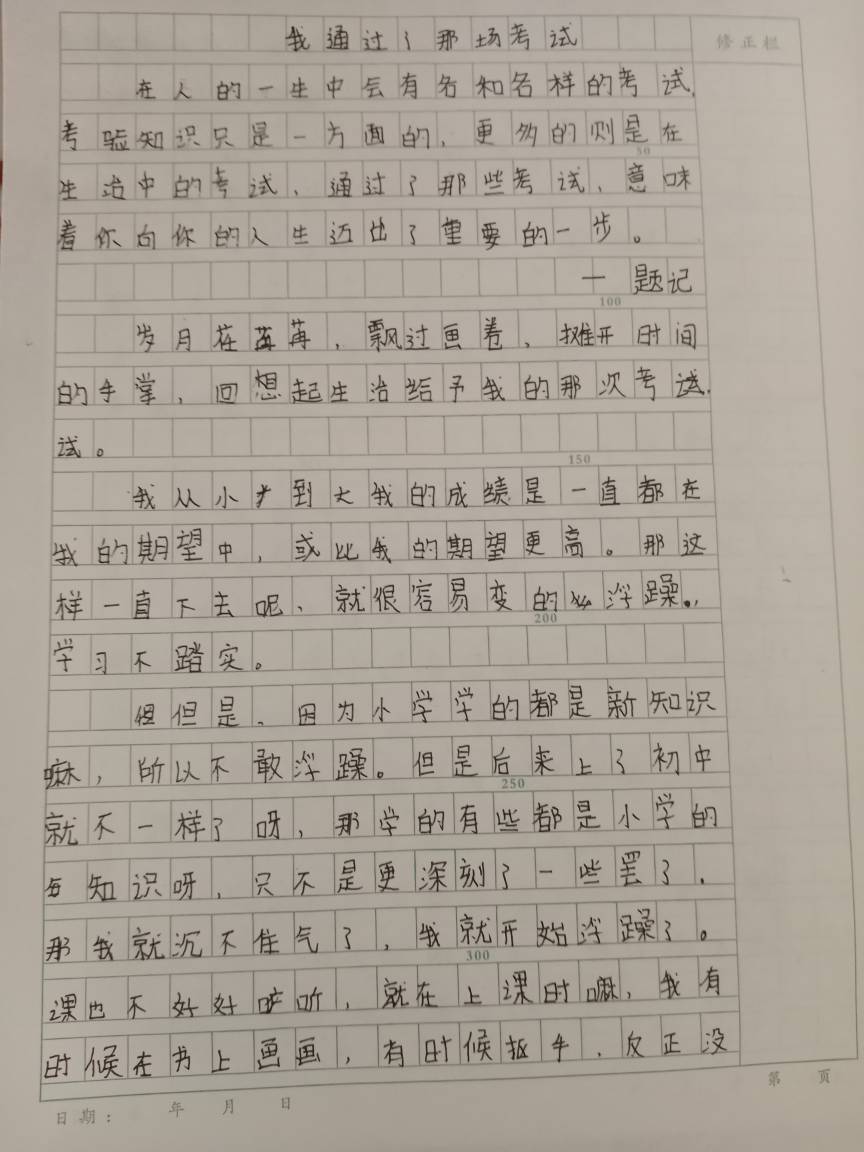 我通过了那场考试
修正栏
在人的一生中会有各和各样的考试,
考验知识只是一方面的,更多的则是在
50
生治中的考试,通过了那些考试,意味
着你向你的人生迈出了重要的一步。
一 题记
100
岁月荏苒,飘过画卷,摊开时间
的手掌,回想起生治给予我的那次考试.
试。
150
我从小到大我的成绩是一直都在
我的期望中,或比我的期望更高。那这
样一直下去呢、就很容易变的浮躁.,
200
学习不踏实。
但但是、因为小学学的都是新知识
嘛,所以不敢浮躁。但是后来上了初中
250
就不一样了呀,那学的有些都是小学的
知识呀,只不是更深刻了一些罢了.
那我就沉不住气了,我就开始浮躁了。
300
课也不好好听,就在上课时嘛,我有
时候在书上画画,有时候抠手.反正没
日期: 年 月 日
第 页